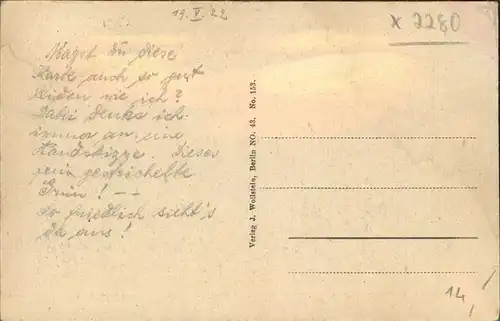 19. V. 22
x 2280
Magst du diese
Karte auch so gut
leiden wie ich?
Dabei denke ich
immer an eine
Handskizze. Dieses
fein gestrichelte
Grün! —
So friedlich sieht's
da aus!
Verlag J. Wollstein, Berlin NO. 43. No. 153.
14